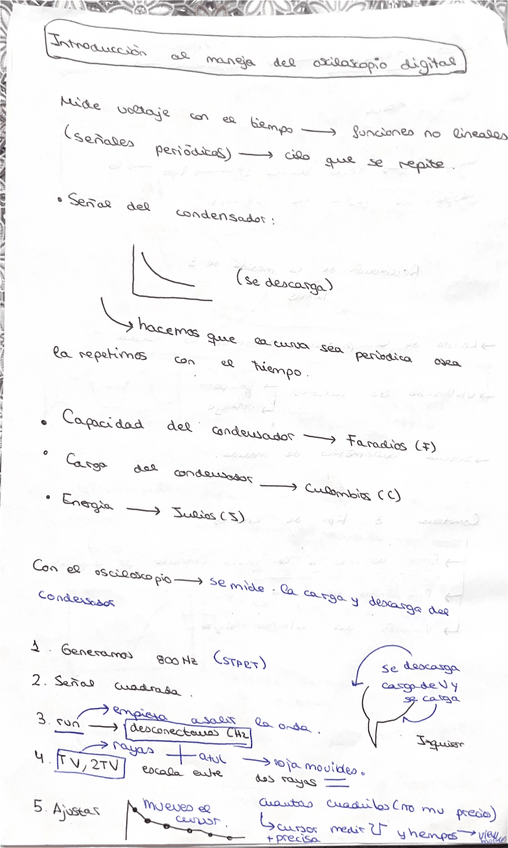 Introducción al maneja del osciloscopio digital
Mide voltaje con el tiempo → funciones no lineales
(señales periódicas) → ciclo que se repite.
• Señal del condensador:
(se descarga)
hacemos que la curva sea periodica osea
la repetimos con el tiempo.
• Capacidad del condensador → Faradios (F)
• Carga del condensador → Culombios (C)
• Energia → Julios (J)
Con el osciloscopio → se mide la carga y descarga del
condensador
1. Generamos 800 Hz (START)
2. Señal cuadrada.
se descarga
carga de V y
se carga
3. run → empieza a salir la onda.
→ desconectamos CH2
4. TV, 2TV → rayas + azul → roja movibles.
escala entre dos rayas
5. Ajustar mueves el
cursor.
cuantos cuadritos (no mu preciso)
↳ cursor medir V y tiempos →
+ precisa